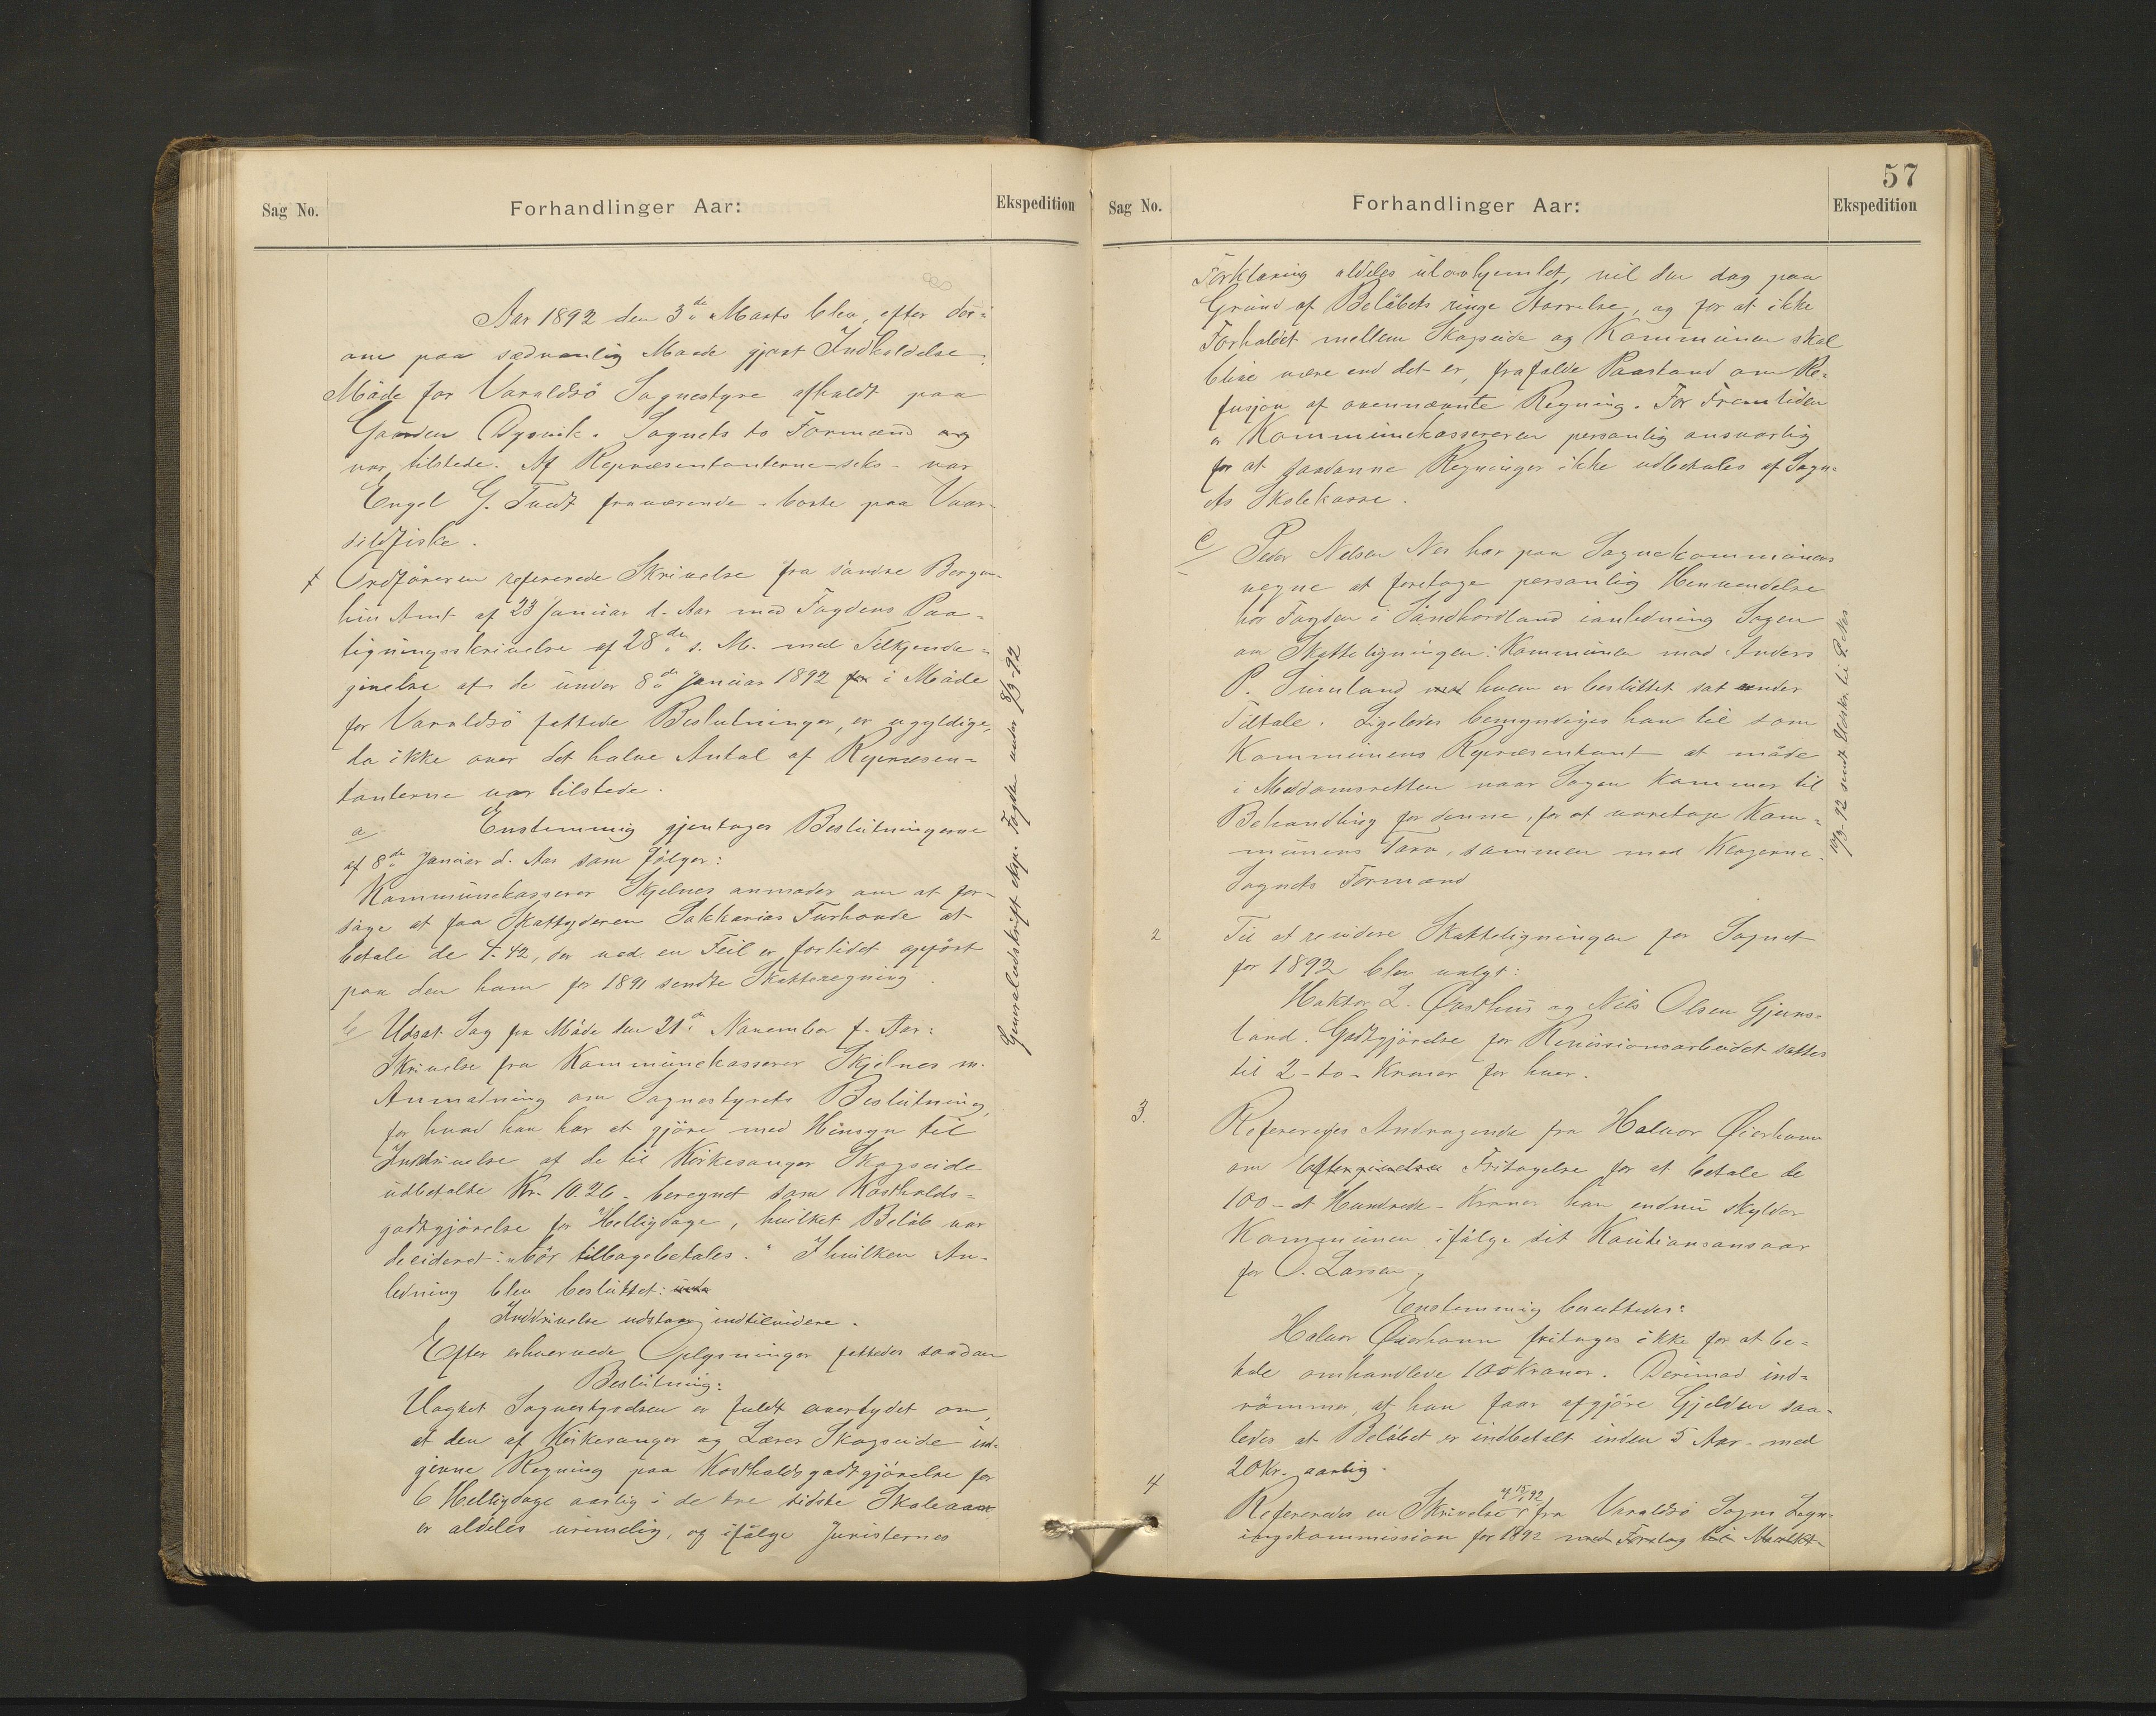 Sag No.
Forhandlinger Aar:
Ekspedition
Aar 1892 den 3de Marts blev, efter der-
om paa sædvanlig Maade gjort Indkaldelse,
Möde for Varaldsö Sognestyre afholdt paa
Gaarden Dysvik. Sognets to Formænd og
var tilstede. Af Repræsentanterne - seks - var
Engel G. Tvedt fraværende - borte paa Vaar-
sildfiske.
Ordföreren refererede Skrivelse fra söndre Bergen-
hus Amt af 23 Januar d. Aar med Fogdens Paa-
tegningsskrivelse af 28de s. M. med Tilkjende-
givelse af de under 8de Januar 1892 for i Möde
for Varaldsö fattede Beslutninger, er ugyldige,
da ikke over det halve Antal af Repræsen-
tanterne var tilstede.
a
Enstemmig gjentages Beslutningerne
af 8de Januar d. Aar som fölger:
Kommunekasserer Skjelnes anmodes om at for-
söge at faa Skattyderen Sakkarias Furhovde at
betale de 4.42, der ved en Feil er forlidet opfört
paa den ham for 1891 sendte Skatteregning.
b
Udsat Sag fra Möde den 21de November f. Aar:
Skrivelse fra Kommunekasserer Skjelnes m.
Anmodning om Sognestyrets Beslutning,
for hvad han har at gjöre med Hensyn til
Inddrivelse af de til Kirkesanger Skogseide
udbetalte Kr. 10.26 - beregnet som Kostholds-
godtgjörelse for Helligdage, hvilket Belöb var
decideret: "bör tilbagebetales." I hvilken An-
ledning blev besluttet:
Inddrivelse udstaar indtilvidere.
Efter erhvervede Oplysninger fattedes saadan
Beslutning:
Uagtet Sognestyrelsen er fuldt overtydet om,
at den af Kirkesanger og Lærer Skogseide ind-
givne Regning paa Kostholdsgodtgjörelse for
6 Helligdage aarlig i de tre sidste Skoleaar
er aldeles urimelig, og ifölge Juristernes
Generaludskrift eksp. Fogden under 8/3-92
57
Sag No.
Forhandlinger Aar:
Ekspedition
Forklaring aldeles uhjemlet, vil den dog paa
Grund af Belöbets ringe Störrelse, og for at ikke
Forholdet mellem Skogseide og Kommunen skal
blive være end det er, frafalde Paastand om Re-
fusjon af ovennævnte Regning. For Fremtiden
er Kommunekassereren personlig ansvarlig
for at saadanne Regninger ikke udbetales af Sogn-
ets Skolekasse.
c
Peder Nelsen Nes har paa Sognekommunens
vegne at foretage personlig Henvendelse
hos Fogden i Söndhordland ianledning Sagen
om Skatteligningen: Kommunen mod Anders
P. Suneland hvem er besluttet sat under
Tiltale. Ligeledes bemyndiges han til som
Kommunens Repræsentant at möde
i Meddomsretten naar Sagen kommer til
Behandling for denne, for at varetage Kom-
munens Tarv, sammen med Klagerne,
Sognets Formænd
10/3-92 sendt Udskr. til P. Nes.
2
Til at revidere Skatteligningen for Sognet
for 1892 blev valgt:
Haktor L. Östhus og Nils Olsen Gjerns-
land. Godtgjörelse for Revisionsarbeidet sattes
til 2 - to - Kroner for hver.
3.
Refereredes Andragende fra Halvor Øierhavn
om Eftergivelse Fritagelse for at betale de
100 - et Hundrede - Kroner han endnu skylder
Kommunen ifölge sit Kautionsansvar
for O. Larsen,
Enstemmig besluttedes:
Halvor Øierhavn fritages ikke for at be-
tale omhandlede 100 Kroner. Derimod ind-
römmes, at han faar afgjöre Gjelden saa-
ledes at Belöbet er indbetalt inden 5 Aar - med
20 Kr. aarlig.
4
Refereredes en Skrivelse fra Varaldsö Sogns Lign-
ingskommission for 1892 med Forslag til